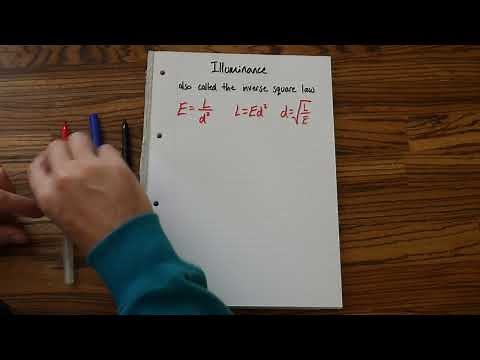 Illuminance
also called the inverse square law
E = L/d² L = Ed² d = √(L/E)